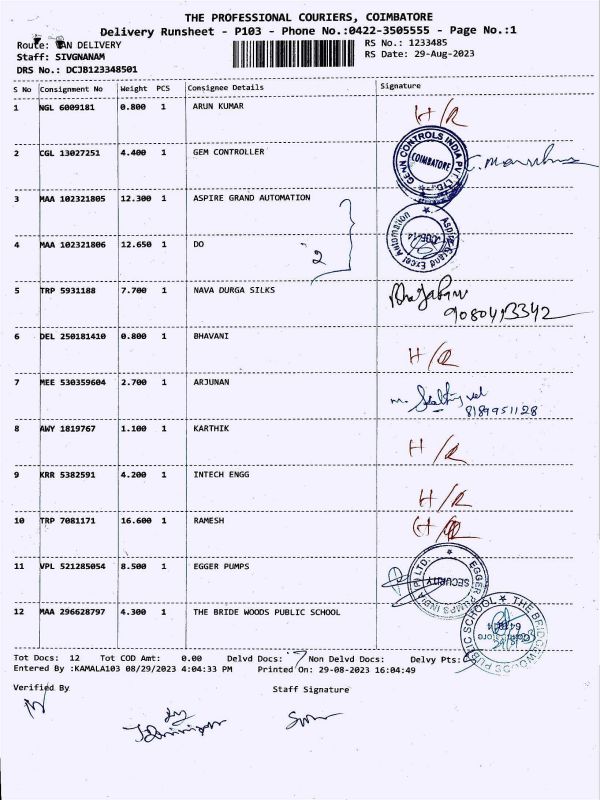 THE PROFESSIONAL COURIERS, COIMBATORE
Delivery Runsheet - P103 - Phone No.:0422-3505555 - Page No.:1
Route: VAN DELIVERY
RS No.: 1233485
Staff: SIVGNANAM
RS Date: 29-Aug-2023
DRS No.: DCJB123348501
S No Consignment No Weight PCS Consignee Details Signature
1 NGL 6009181 0.800 1 ARUN KUMAR H/R
2 CGL 13027251 4.400 1 GEM CONTROLLER
GENN CONTROLS INDIA PVT. LTD.
COIMBATORE
3 MAA 102321805 12.300 1 ASPIRE GRAND AUTOMATION
4 MAA 102321806 12.650 1 DO 2
5 TRP 5931188 7.700 1 NAVA DURGA SILKS
6 DEL 250181410 0.800 1 BHAVANI H/R
7 MEE 530359604 2.700 1 ARJUNAN
8189951128
8 AWY 1819767 1.100 1 KARTHIK H/R
9 KRR 5382591 4.200 1 INTECH ENGG H/R
10 TRP 7081171 16.600 1 RAMESH H/R
11 VPL 521285054 8.500 1 EGGER PUMPS
EGGER PUMPS INDIA P LTD.
SECURITY
12 MAA 296628797 4.300 1 THE BRIDE WOODS PUBLIC SCHOOL
Tot Docs: 12 Tot COD Amt: 0.00 Delvd Docs: 7 Non Delvd Docs: Delvy Pts:
Entered By :KAMALA103 08/29/2023 4:04:33 PM Printed On: 29-08-2023 16:04:49
Verified By Staff Signature